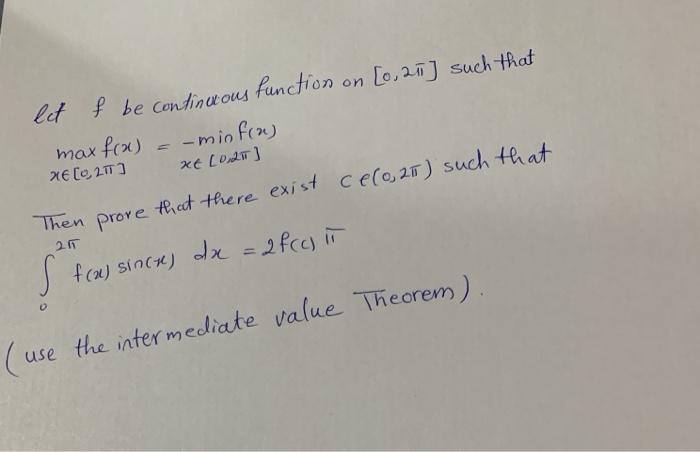 let f be continuous function on [0,2π] such that
max f(x) = -min f(x)
x∈[0,2π] x∈[0,2π]
Then prove that there exist c∈(0,2π) such that
∫₀²π f(x) sin(x) dx = 2f(c) π
(use the intermediate value Theorem).